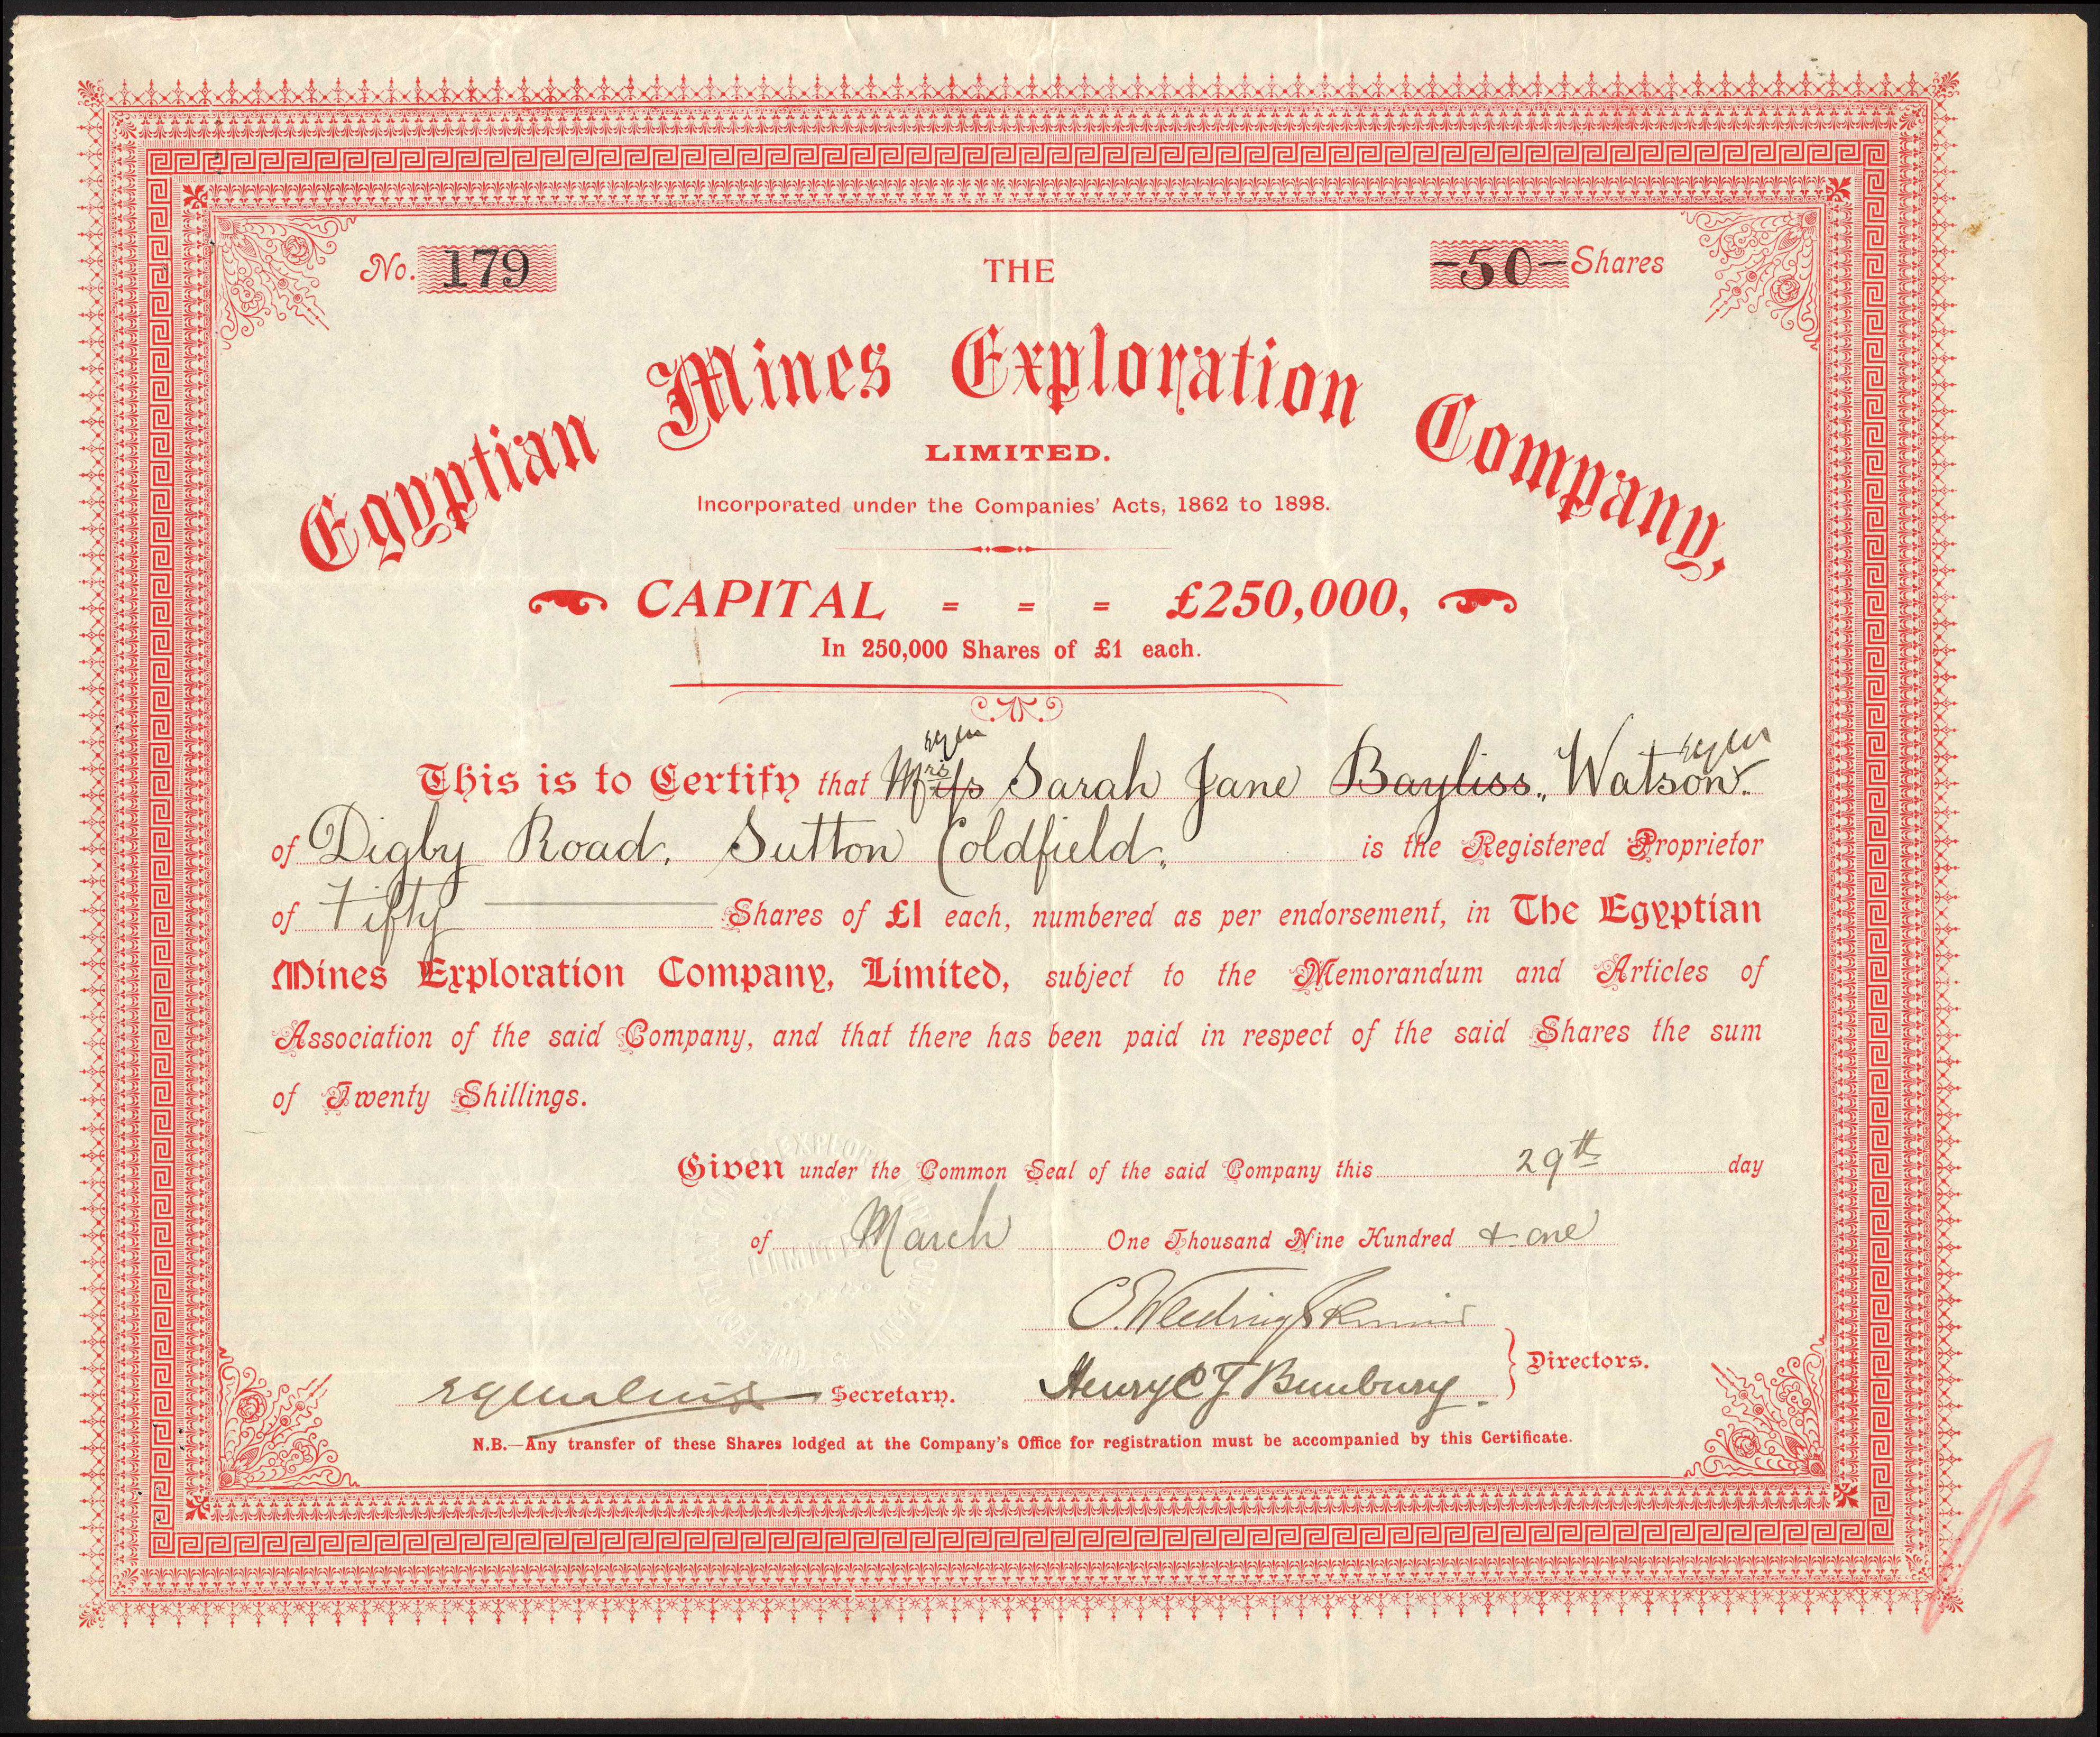 No. 179
THE
-50- Shares
Egyptian Mines Exploration Company,
LIMITED.
Incorporated under the Companies' Acts, 1862 to 1898.
CAPITAL = = = £250,000,
In 250,000 Shares of £1 each.
This is to Certify that Mrs Sarah Jane Bayliss, Watson.
of Digby Road, Sutton Coldfield, is the Registered Proprietor
of Fifty Shares of £1 each, numbered as per endorsement, in The Egyptian
Mines Exploration Company, Limited, subject to the Memorandum and Articles of
Association of the said Company, and that there has been paid in respect of the said Shares the sum
of Twenty Shillings.
Given under the Common Seal of the said Company this 29th day
of March One Thousand Nine Hundred & one
Henry C J Bunbury Directors.
Secretary.
N.B.—Any transfer of these Shares lodged at the Company's Office for registration must be accompanied by this Certificate.